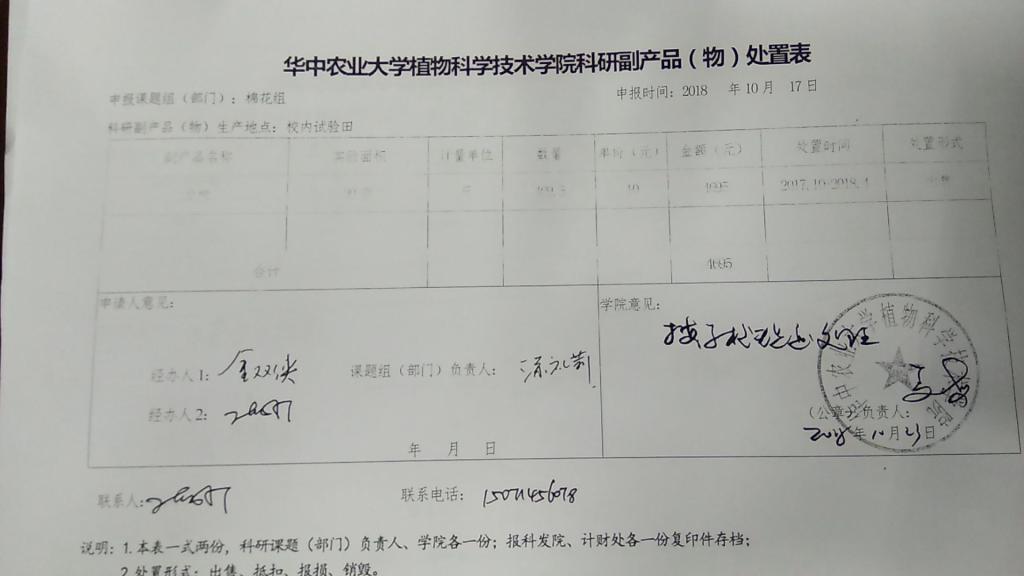 华中农业大学植物科学技术学院科研副产品（物）处置表
申报课题组（部门）：棉花组 申报时间：2018 年 10 月 17 日
科研副产品（物）生产地点：校内试验田
副产品名称 实验面积 计量单位 数量 单价（元） 金额（元） 处置时间 处置形式
10 4695 2017.10-2018.4
合计 4695
申请人意见： 学院意见：
按学校规定处理
经办人1： 金双侠 课题组（部门）负责人：
经办人2：
（公章）负责人：
年 月 日 2018年10月23日
联系人： 联系电话：
说明：1.本表一式两份，科研课题（部门）负责人、学院各一份；报科发院、计财处各一份复印件存档；
2.处置形式：出售、抵扣、报损、销毁。